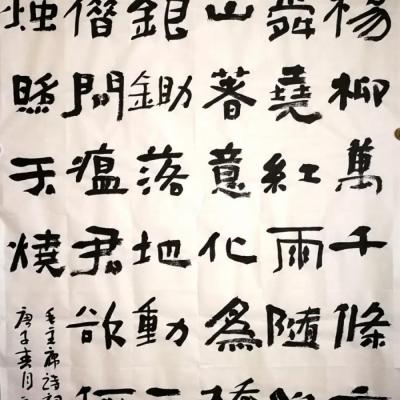 楊柳萬千條
舜堯紅雨隨
山著意化為橋
銀鋤落地動三
借問瘟君欲何
燭照天燒
毛主席詩
庚子春月